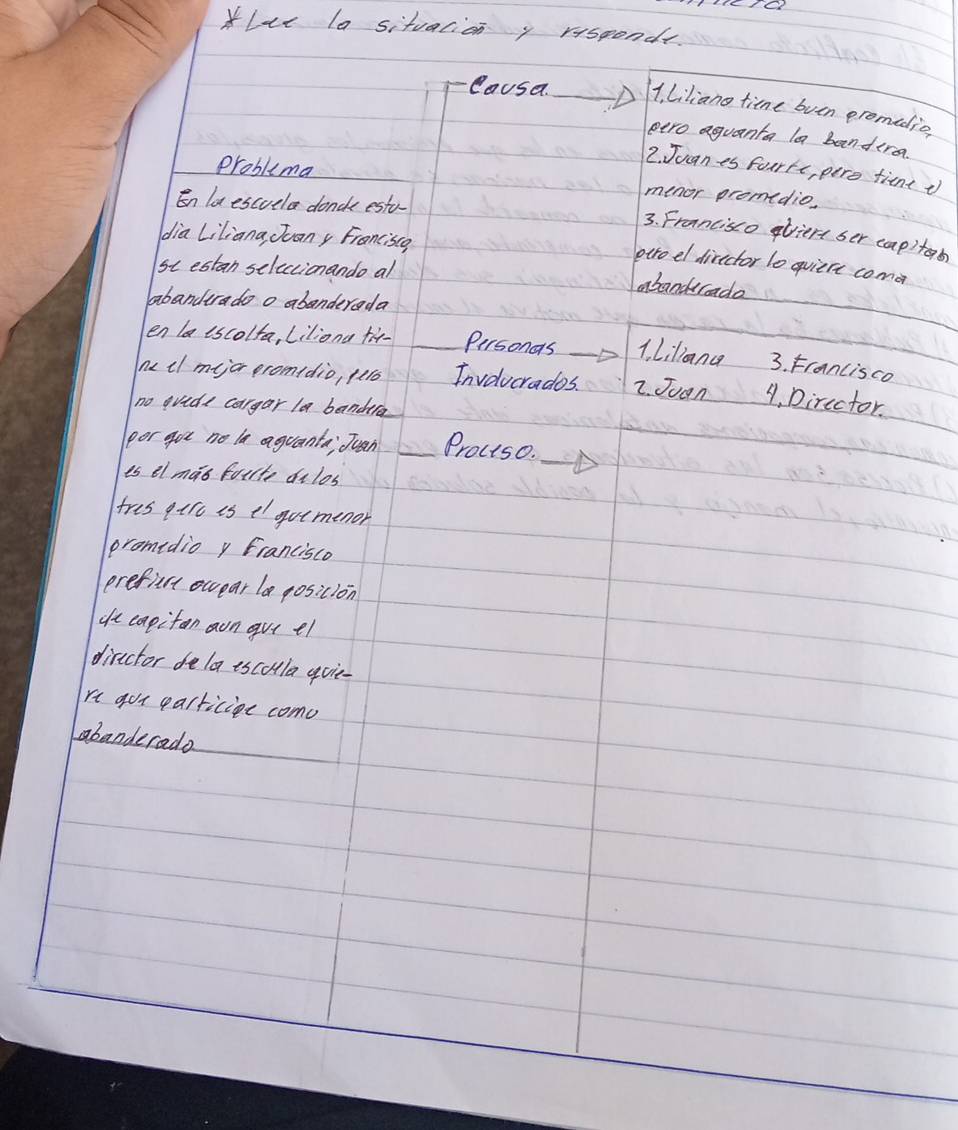 *Lee la situación y responde.
Causa
1. Liliana tiene buen promedio,
pero aguanta la bandera.
2. Juan es fuerte, pero tiene el
menor promedio.
3. Francisco quiere ser capitan
pero el director lo quiere como
abanderado
Problema
En la escuela donde estu-
dia Liliana, Juan y Francisco,
se estan seleccionando al
abanderado o abanderada
en la escolta, Liliana tie-
ne el mejor promedio, pero
no puede cargar la bandera
por que no la aguanta; Juan
es el más fuerte de los
tres pero es el que menor
promedio y Francisco
prefiere ocupar la posición
de capitan aun que el
director de la escuela quie-
re que participe como
abanderado
Personas
Involucrados.
1. Liliana 3. Francisco
2. Juan 4. Director.
Proceso.